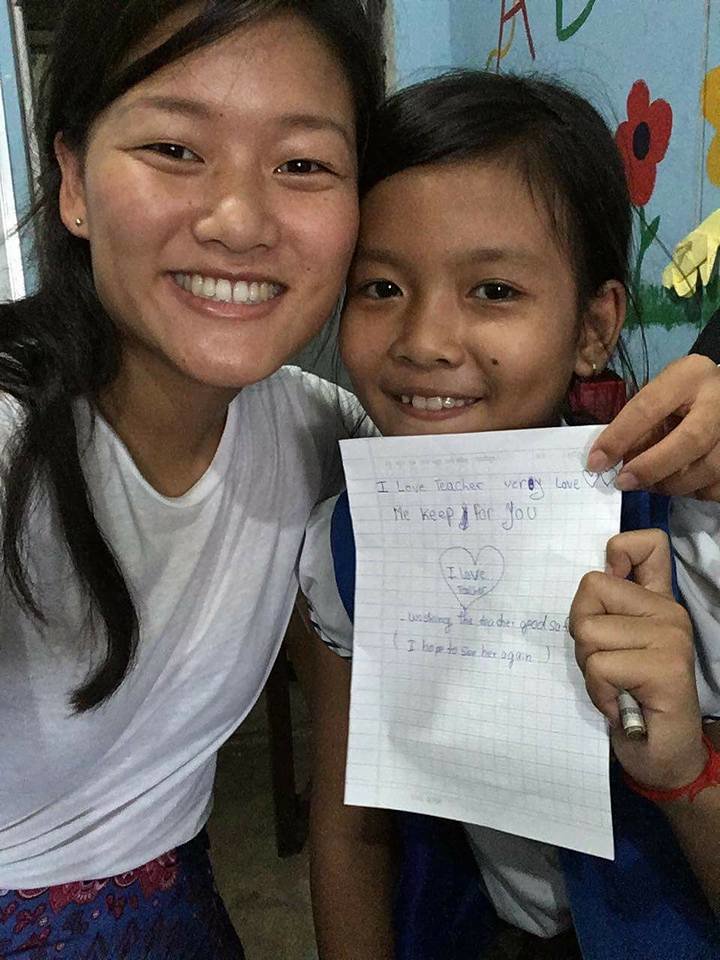 A
I Love Teacher very Love ♡♡
Me keep for you
I Love
Teacher
- wishing the teacher good
( I hope to see her again )